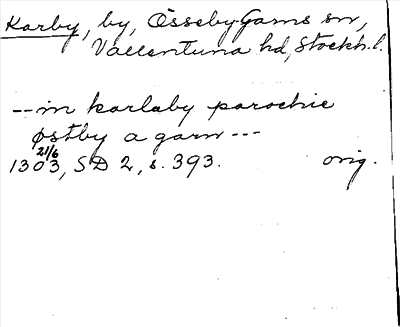 Karby, by, Össeby-Garns sn,
Vallentuna hd, Stockh. l.
-- in karlaby parochie
østby a garn ---
21/6
1303, SD 2, s. 393. orig.